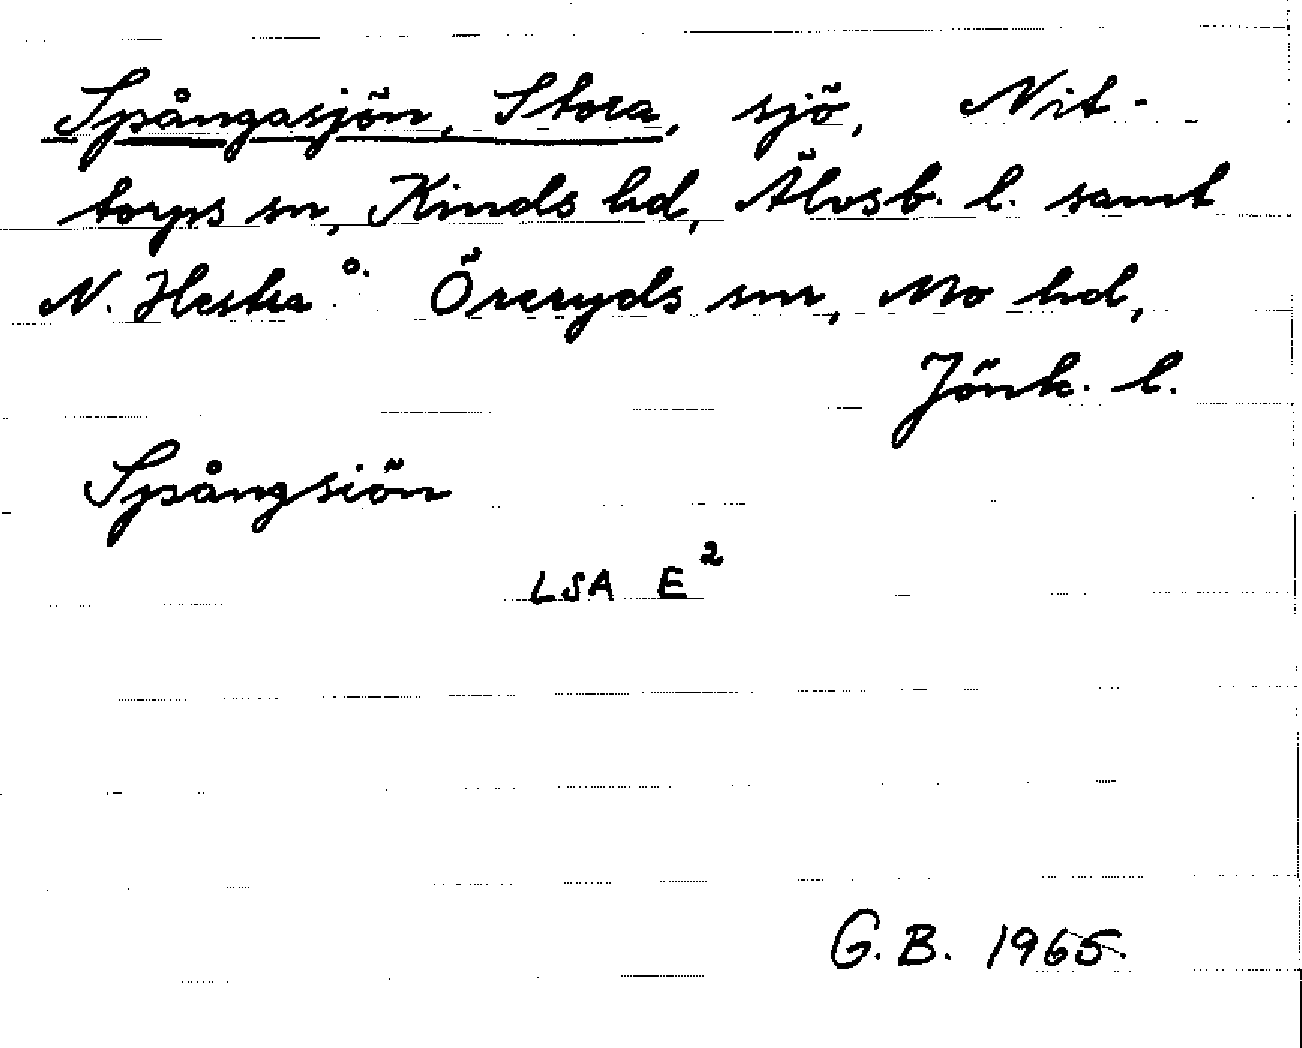 Spångasjön, Stora, sjö, Nit-
torps sn, Kinds hd, Älvsb. l. samt
N. Hestra o. Öreryds snr, Mo hd,
Jönk. l.
Spångsiön
LSA E²
G.B. 1965.